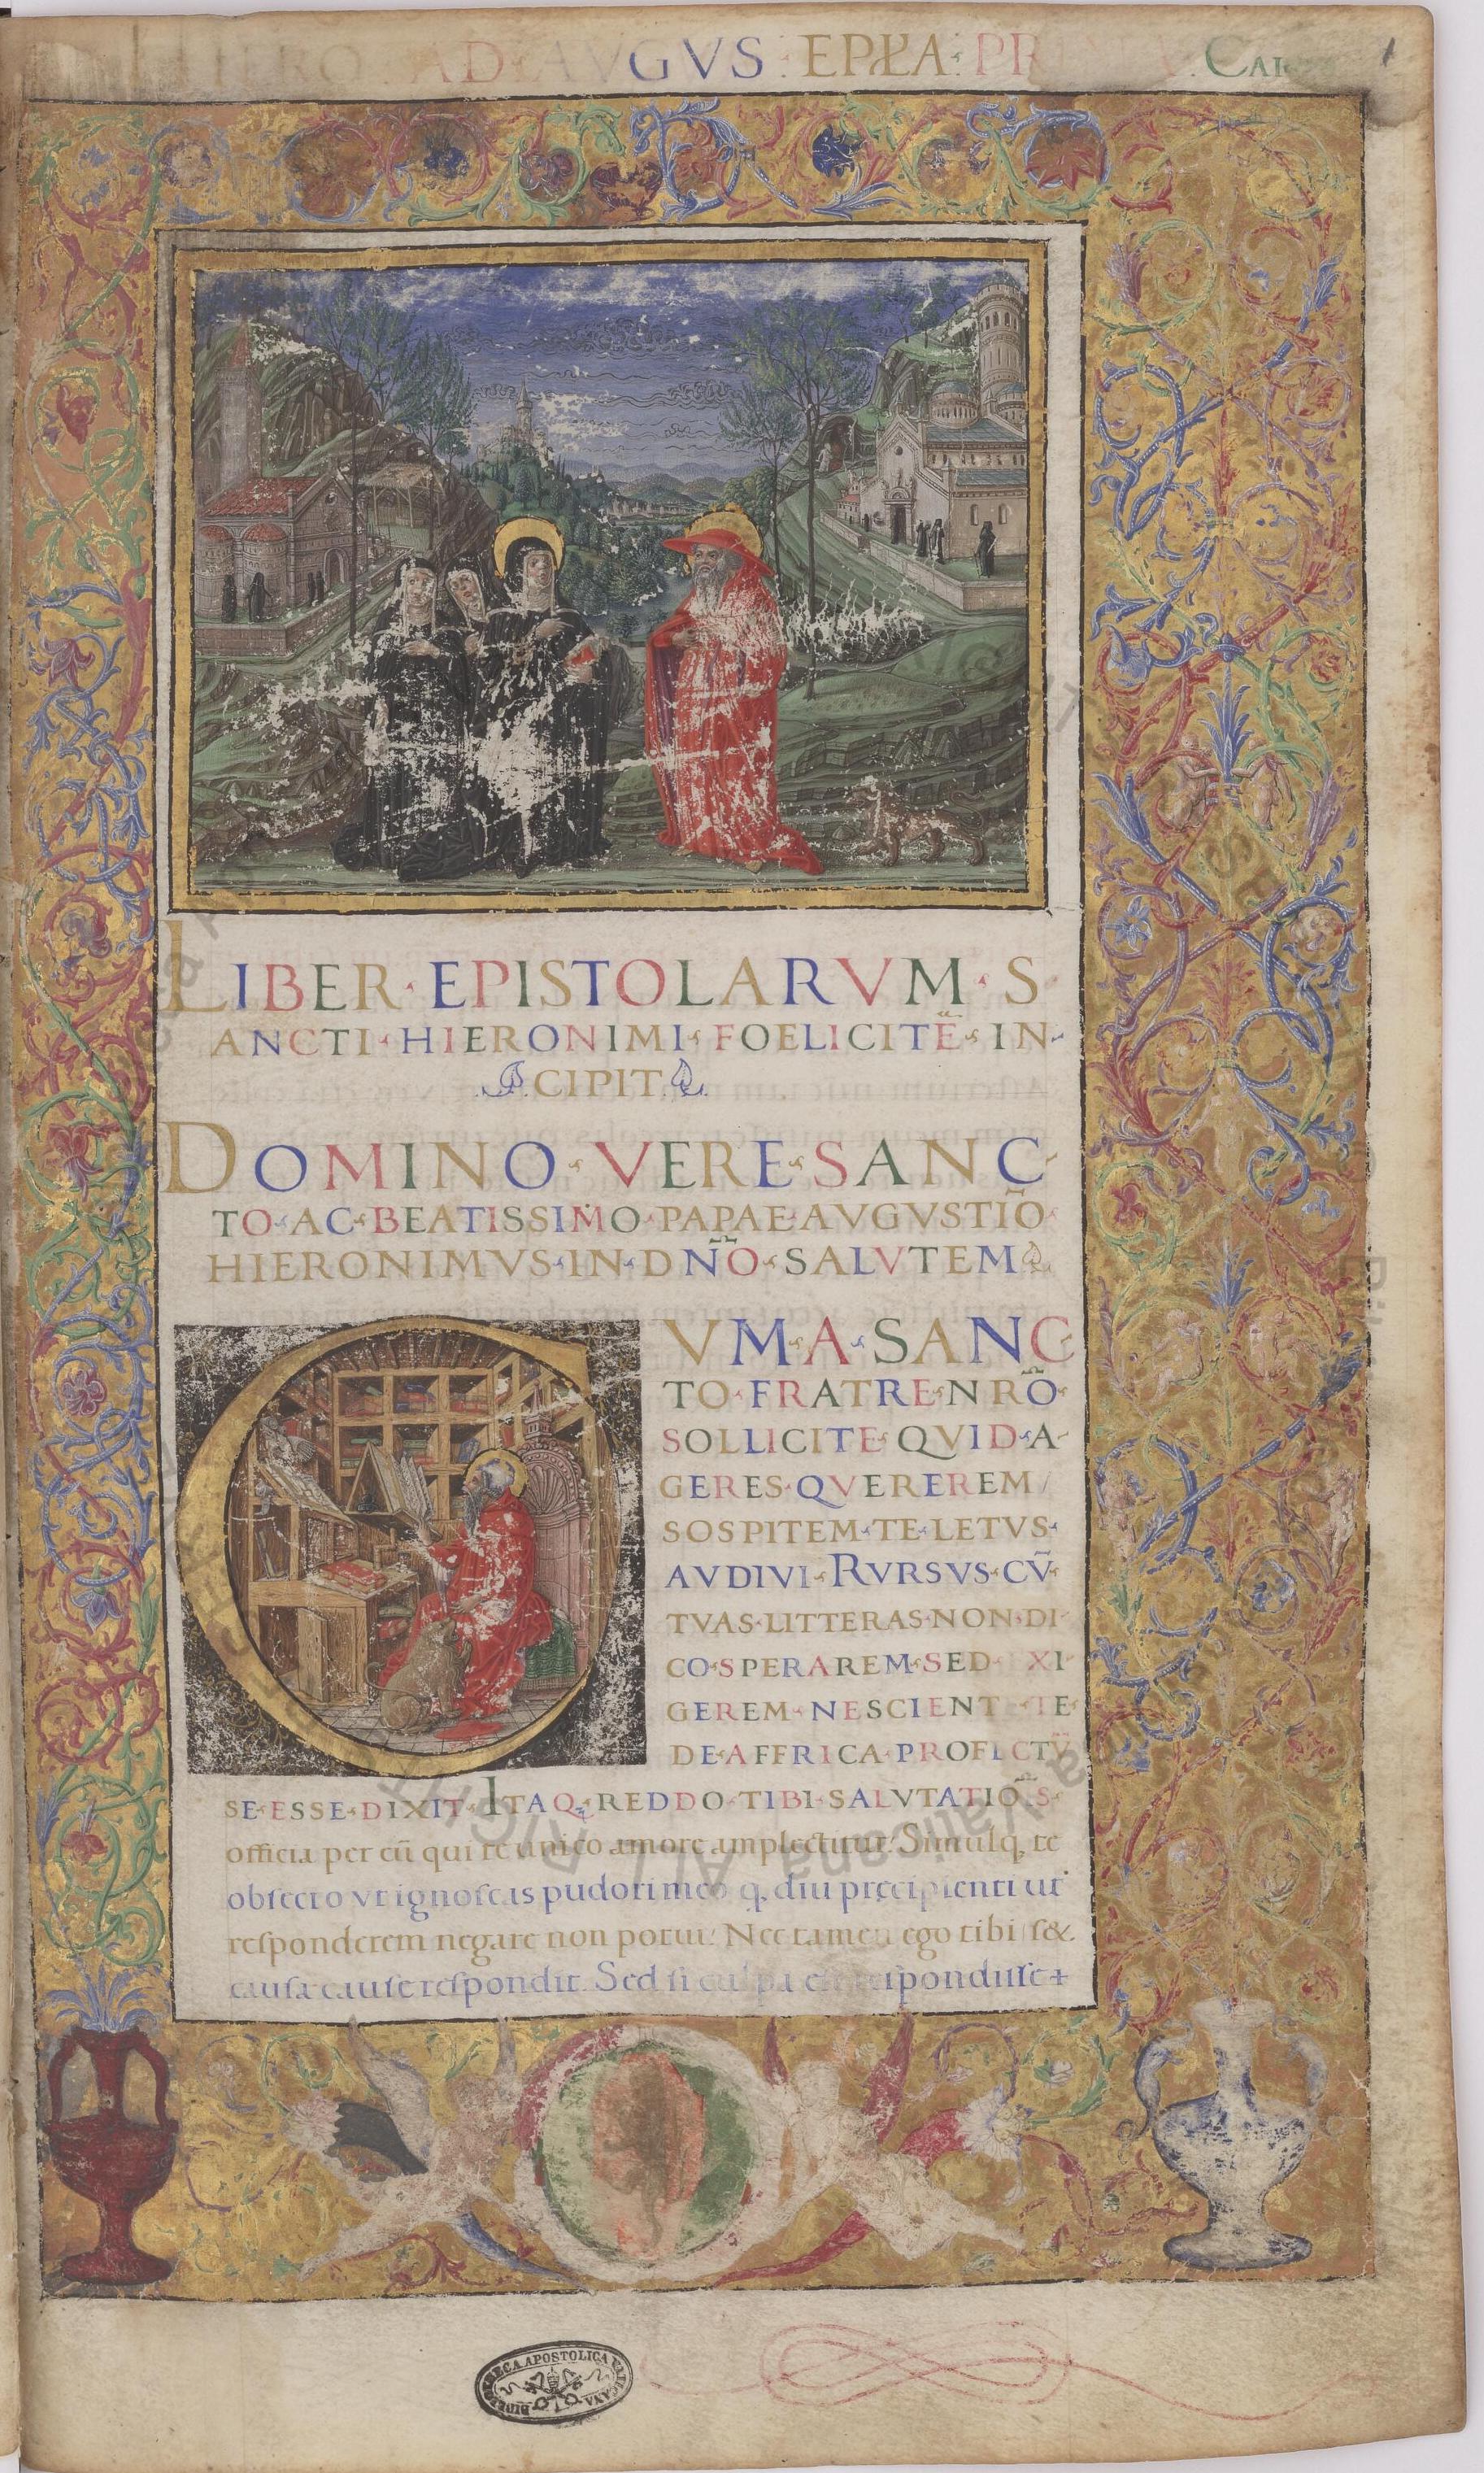 HIERO · AD · AVGVS · EPL̃A · PR · CAP
1
LIBER · EPISTOLARVM · S
ANCTI · HIERONIMI · FOELICITẼ · IN
CIPIT
DOMINO · VERE · SANC
TO · AC · BEATISSIMO · PAPAE · AVGVSTIÕ
HIERONIMVS · IN · DÑO · SALVTEM
CVM · A · SANC
TO · FRATRE · NRÕ
SOLLICITE · QVID · A
GERES · QVEREREM /
SOSPITEM · TE · LETVS
AVDIVI · RVRSVS · CṼ
TVAS · LITTERAS · NON · DI
CO · SPERAREM · SED · XI
GEREM · NESCIENT · TE
DE · AFFRICA · PROFECTṼ
SE · ESSE · DIXIT · ITAQ · REDDO · TIBI · SALVTATIÕS
officia per cũ qui te unico amore amplectitur. Simulq, te
obsecro vt ignoscas pudori meo q, diu precipienti ut
responderem negare non potui. Nec tamen ego tibi s&
causa cause respondit. Sed si culpa est respondisse
BIBLIOTHECA APOSTOLICA VATICANA